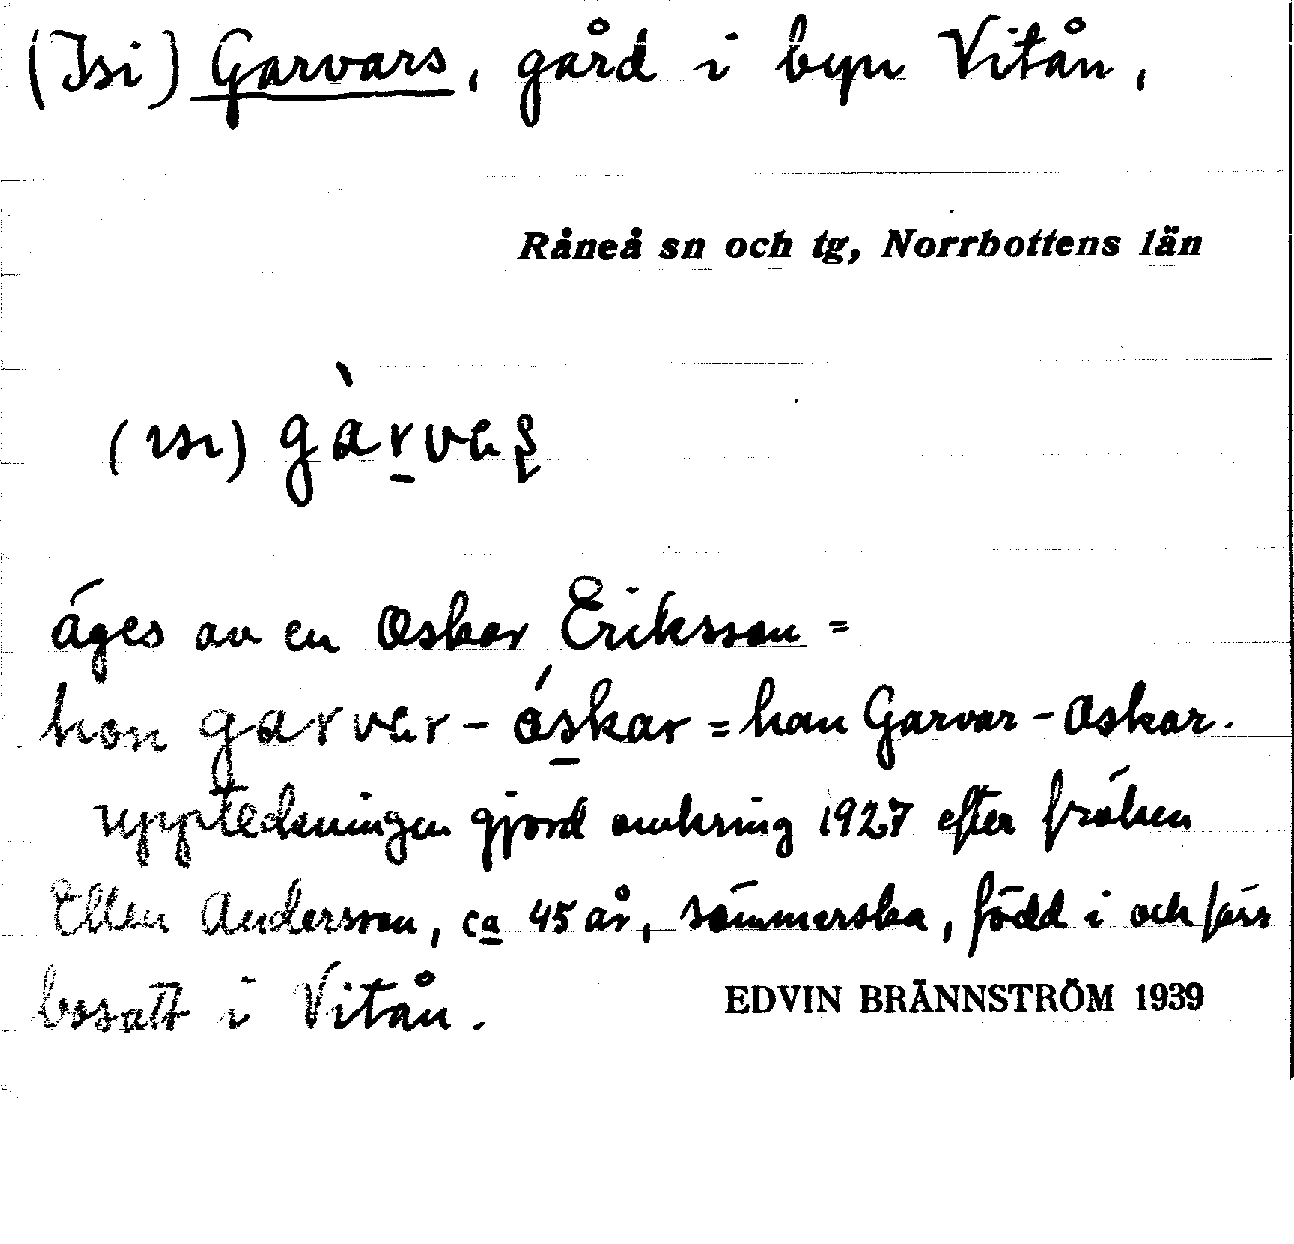 (Isi) Garvars, gård i byn Vitån,
Råneå sn och tg, Norrbottens län
(ɪsɪ) gàrvaʂ
äges av en Oskar Eriksson =
han garvar-óskar = han Garvar-Oskar.
uppteckningen gjord omkring 1927 efter fröken
Ellen Andersson, ca 45 år, sömmerska, född i och
bosatt i Vitån.
EDVIN BRÄNNSTRÖM 1939